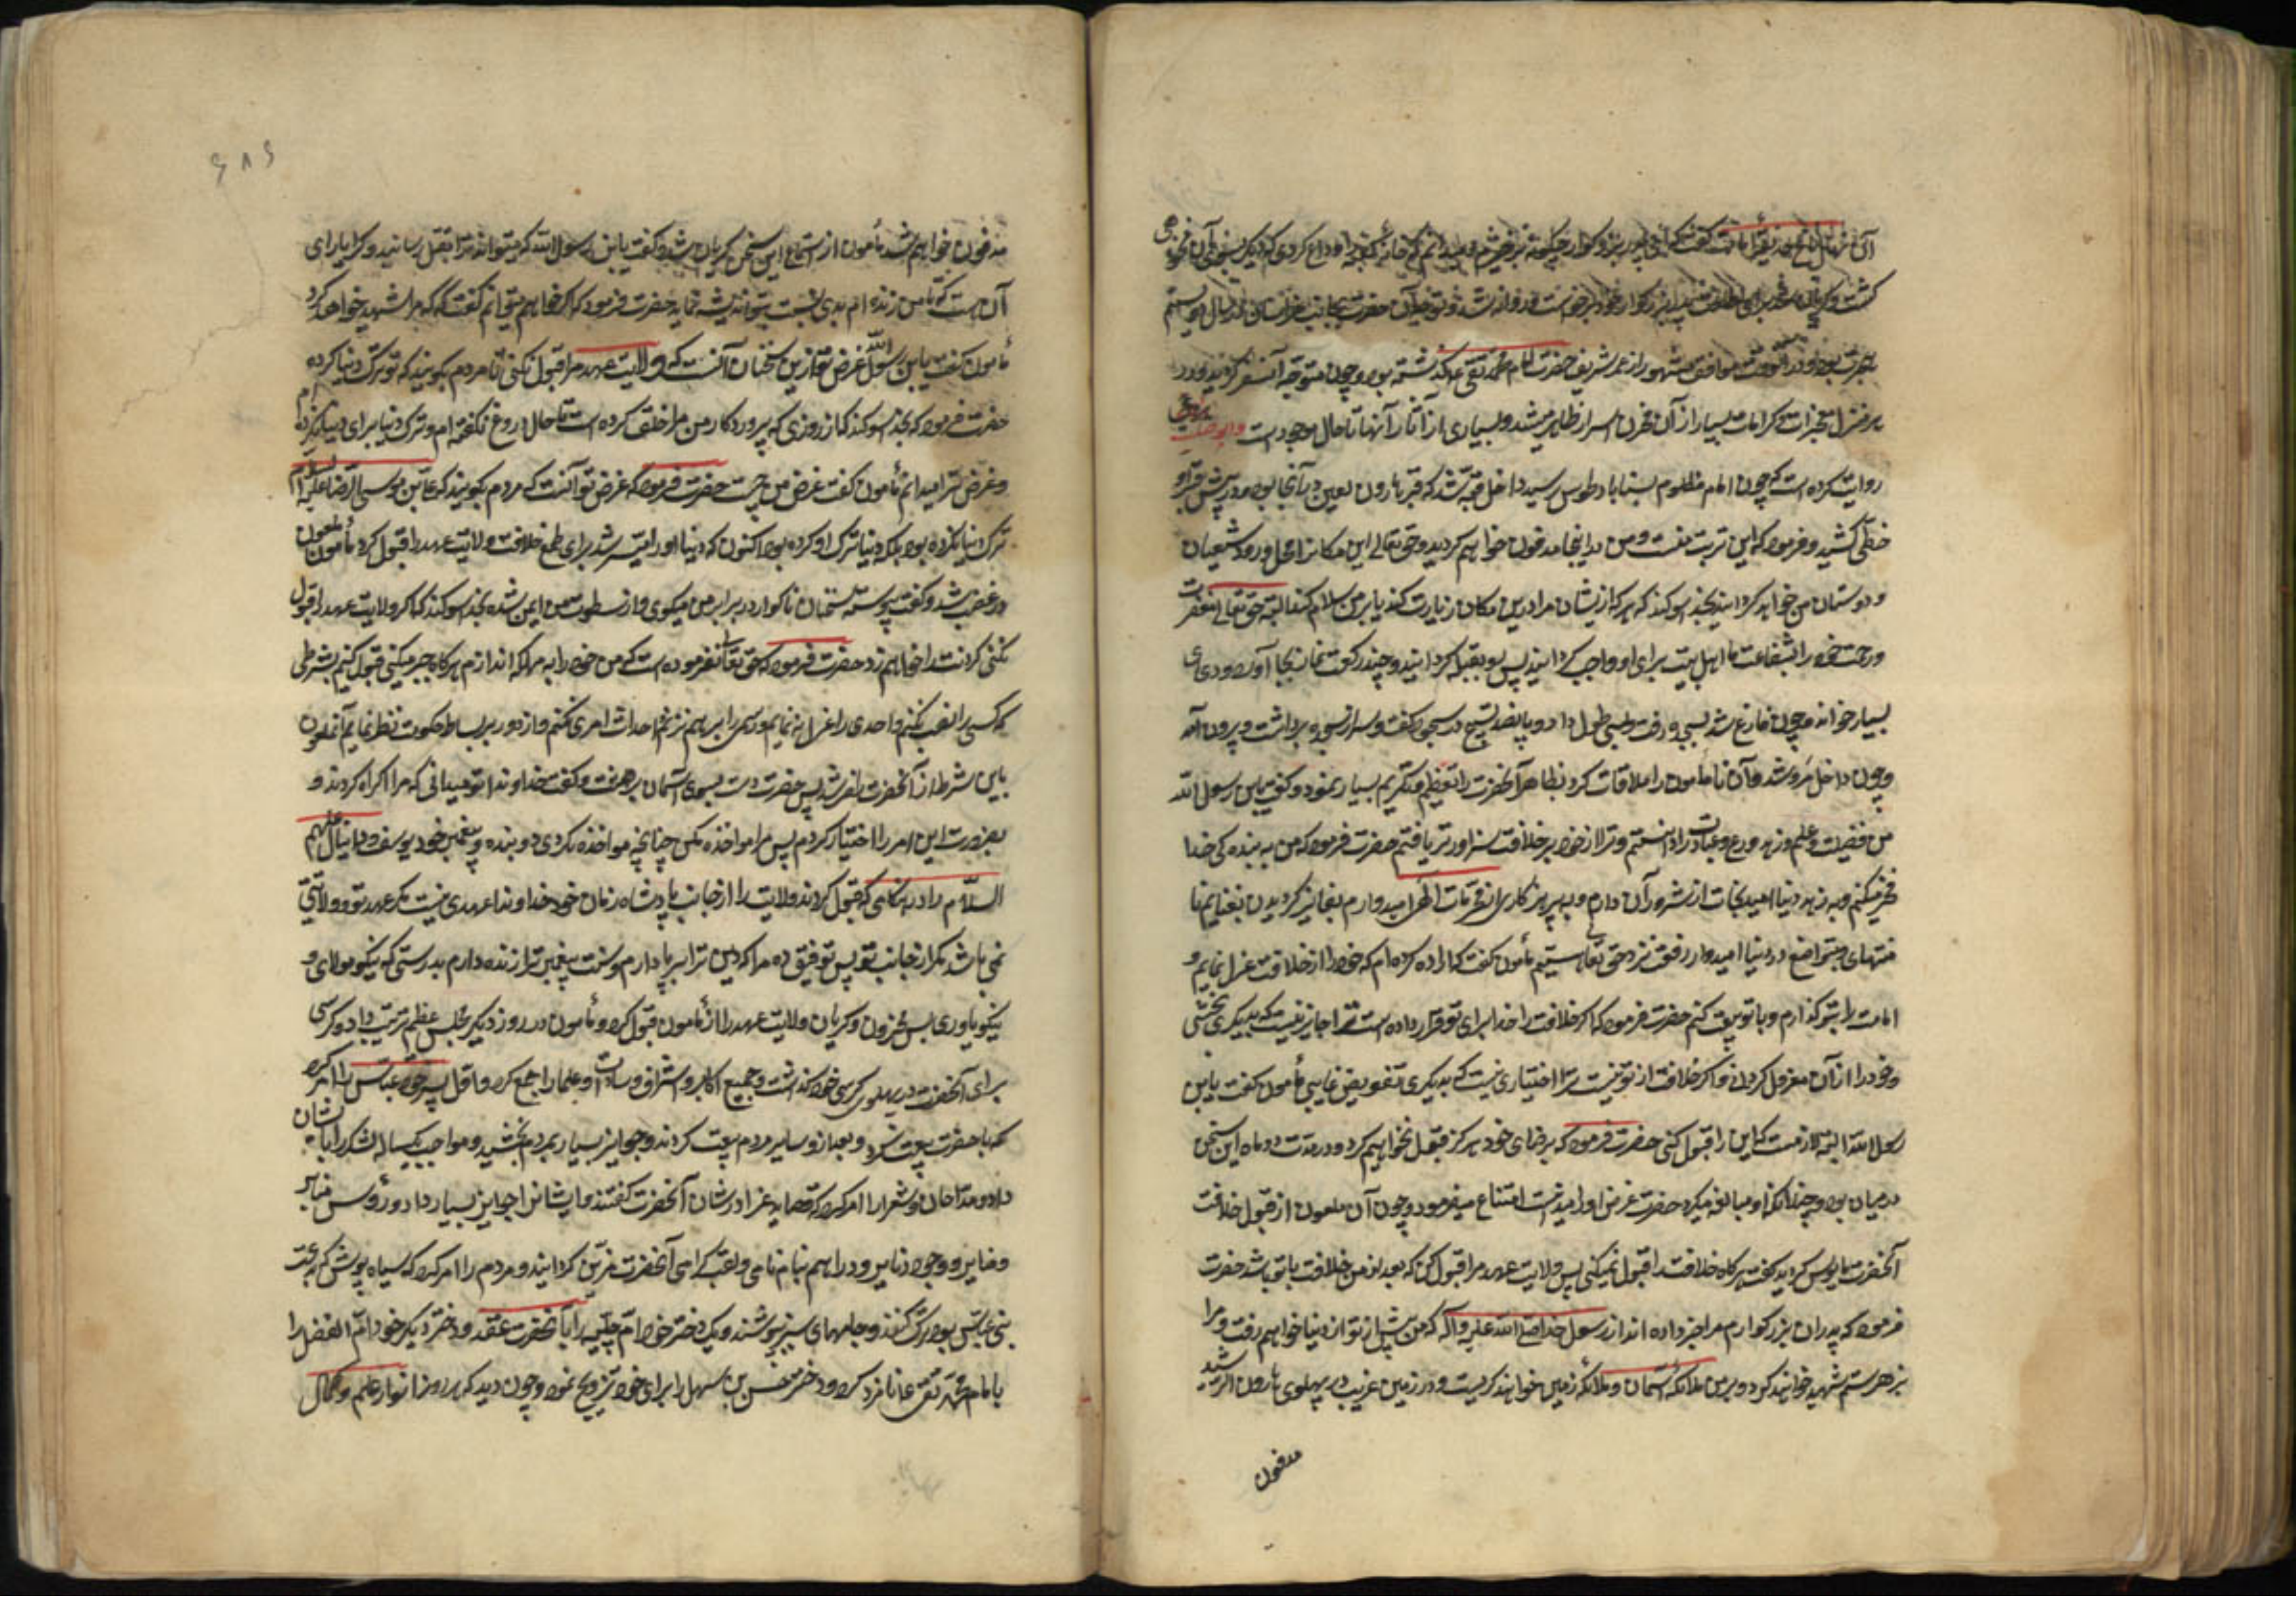 گفت ای پدر بزرگوار چگونه برخیزم و میدانم که خانه کعبه را وداع کردی که دیگر بسوی آن نخواهی
گشت و گریان شد برای اطاعت پدر بزرگوار خود برخواست و روانه شد و توجه آن حضرت بجانب خراسان در سال دویستم
هجرت بود و در آنوقت موافق مشهور از عمر شریف حضرت امام محمد تقی گذشته بود و چون متوجه آن سفر گردید و در
هر منزل معجزات و کرامات بسیار از آن مخزن اسرار ظاهر میشد و بسیاری از آثار آنها تا حال موجود است
روایت کرده است که چون امام مظلوم بسناباد طوس رسید داخل قبه شد که قبر هارون لعین در آنجا بود و در پیش قبر او
خطی کشید و فرمود که این تربت منست و من در اینجا مدفون خواهم گردید و حق تعالی این مکانرا محل ورود شیعیان
و دوستان من خواهد گردانید بخدا سوگند که هر که از ایشان مرا در این مکان زیارت کند یا بر من سلام کند البته حق تعالی مغفرت
و رحمت خود را بشفاعت ما اهل بیت برای او واجب گرداند پس رو بقبله گردانید و چند رکعت نماز بجا آورد و دعای
بسیار خواند و چون فارغ شد بسجده رفت و بسی طول داد و پانصد تسبیح در سجده گفت و سر از سجده برداشت و بیرون آمد
و چون داخل مرو شد مأمون را ملاقات کرد بظاهر آنحضرت را تعظیم و تکریم بسیار نمود و گفت یابن رسول الله
من فضیلت و علم و زهد و ورع و عبادت ترا دانستم و ترا از خود بر خلافت سزاوارتر یافتم حضرت فرمود که من به بندگی خدا
فخر میکنم و به زهد دنیا امید نجات از شرور آن دارم و به پرهیزکاری از محرمات الهی امیدوارم بفایز گردیدن بغنایم نا
متناهی و بتواضع در دنیا امیدوار رفعت نزد حق تعالی هستم مأمون گفت که اراده کرده‌ام که خود را از خلافت عزل نمایم و
امامت را بتو گذارم و با تو بیعت کنم حضرت فرمود که اگر خلافت را خدا برای تو قرار داده است ترا جایز نیست که بدیگری بخشی
و خود را از آن معزول گردانی و اگر خلافت از تو نیست ترا اختیاری نیست که بدیگری تفویض نمایی مأمون گفت یابن
رسول الله البته لازمست که این را قبول کنی حضرت فرمود که برضای خود هرگز قبول نخواهم کرد و در مدت دو ماه این سخن
در میان بود و چندانکه او مبالغه میکرد حضرت غرض او را میدانست امتناع میفرمود و چون آن ملعون از قبول خلافت
آنحضرت مایوس گردید گفت هرگاه خلافت را قبول نمیکنی پس ولایت عهد مرا قبول کن که بعد از من خلافت با تو باشد حضرت
فرمود که پدران بزرگوارم مرا خبر داده‌اند از رسول خدا صلی الله علیه و آله که من پیش از تو از دنیا خواهم رفت و مرا
بزهر ستم شهید خواهند کرد و بر من ملائکه آسمان و ملائکه زمین خواهند گریست و در زمین غربت در پهلوی هارون الرشید
مدفون
۶۸۶
مدفون خواهم شد مأمون از استماع این سخن گریان شد و گفت یابن رسول الله که میتواند ترا بقتل رسانید و کرا یارای
آن هست که تا من زنده‌ام بدی نسبت بتو اندیشه نماید حضرت فرمود که اگر خواهم میتوانم گفت که که مرا شهید خواهد کرد
مأمون گفت یابن رسول الله غرض تو ازین سخنان آنست که ولایت عهد مرا قبول نکنی تا مردم بگویند که تو ترک دنیا کرده
حضرت فرمود که بخدا سوگند که از روزی که پروردگار من مرا خلق کرده است تا حال دروغ نگفته‌ام و ترک دنیا برای دنیا نکرده‌ام
و غرض ترا میدانم مأمون گفت غرض من چیست حضرت فرمود که غرض تو آنست که مردم بگویند که علی بن موسی الرضا علیه السلام
ترک دنیا نکرده بود بلکه دنیا ترک او کرده بود اکنون که دنیا او را میسر شد برای طمع خلافت ولایت عهد را قبول کرد مأمون ملعون
در غضب شد و گفت پیوسته سخنان ناگوار در برابر من میگوی و از سطوت من ایمن شده بخدا سوگند که اگر ولایت عهد را قبول
نکنی گردنت را خواهم زد حضرت فرمود که حق تعالی نفرموده است که من خود را به مهلکه اندازم هرگاه جبر میکنی قبول کنم بشرطی
که کسی را نصب نکنم و احدی را عزل ننمایم و رسمی را برهم نزنم و احداث امری نکنم و از دور بر بساط حکومت نظر نمایم آن ملعون
باین شرط از آنحضرت راضی شد پس حضرت دست بسوی آسمان برداشت و گفت خداوندا تو میدانی که مرا اکراه کردند و
بضرورت این امر را اختیار کردم پس مرا مواخذه مکن چنانچه مواخذه نکردی دو بنده و پیغمبر خود یوسف و دانیال علیهم
السلام را در هنگامی که قبول کردند ولایت را از جانب پادشاه زمان خود خداوندا عهدی نیست مگر عهد تو و ولایتی
نمی‌باشد مگر از جانب تو پس توفیق ده مرا که دین ترا برپا دارم و سنت پیغمبر ترا زنده دارم بدرستی که نیکو مولای و
نیکو یاوری پس محزون و گریان ولایت عهد را از مأمون قبول کرد و مأمون در روز دیگر مجلس عظیم ترتیب داد و کرسی
برای آنحضرت در پهلوی کرسی خود گذاشت و جمیع اکابر و اشراف و سادات و علما را جمع کرد و اول پسر خود عباس را امر کرد
که با حضرت بیعت کرد و بعد از او سایر مردم بیعت کردند و جوایز بسیار بمردم بخشید و مواجب یکساله لشکر را بایشان
داد و مداحان و شعرا را امر کرد که قصاید غرا در شان آنحضرت گفتند و ایشانرا جوایز بسیار داد و رؤس منابر
و منایر و وجوه دنانیر و دراهم بنام نامی و لقب گرامی آنحضرت مزین گردانیدند و مردم را امر کرد که سیاه پوشی که بدعت
بنی عباس بود ترک کنند و جامهای سبز پوشند و یک دختر خود ام حبیبه را بآنحضرت عقد و دختر دیگر خود ام الفضل را
بامام محمد تقی ع نامزد کرد و دختر حسن بن سهل را برای خود تزویج نمود و چون دید که هر روز انوار علم و کمال